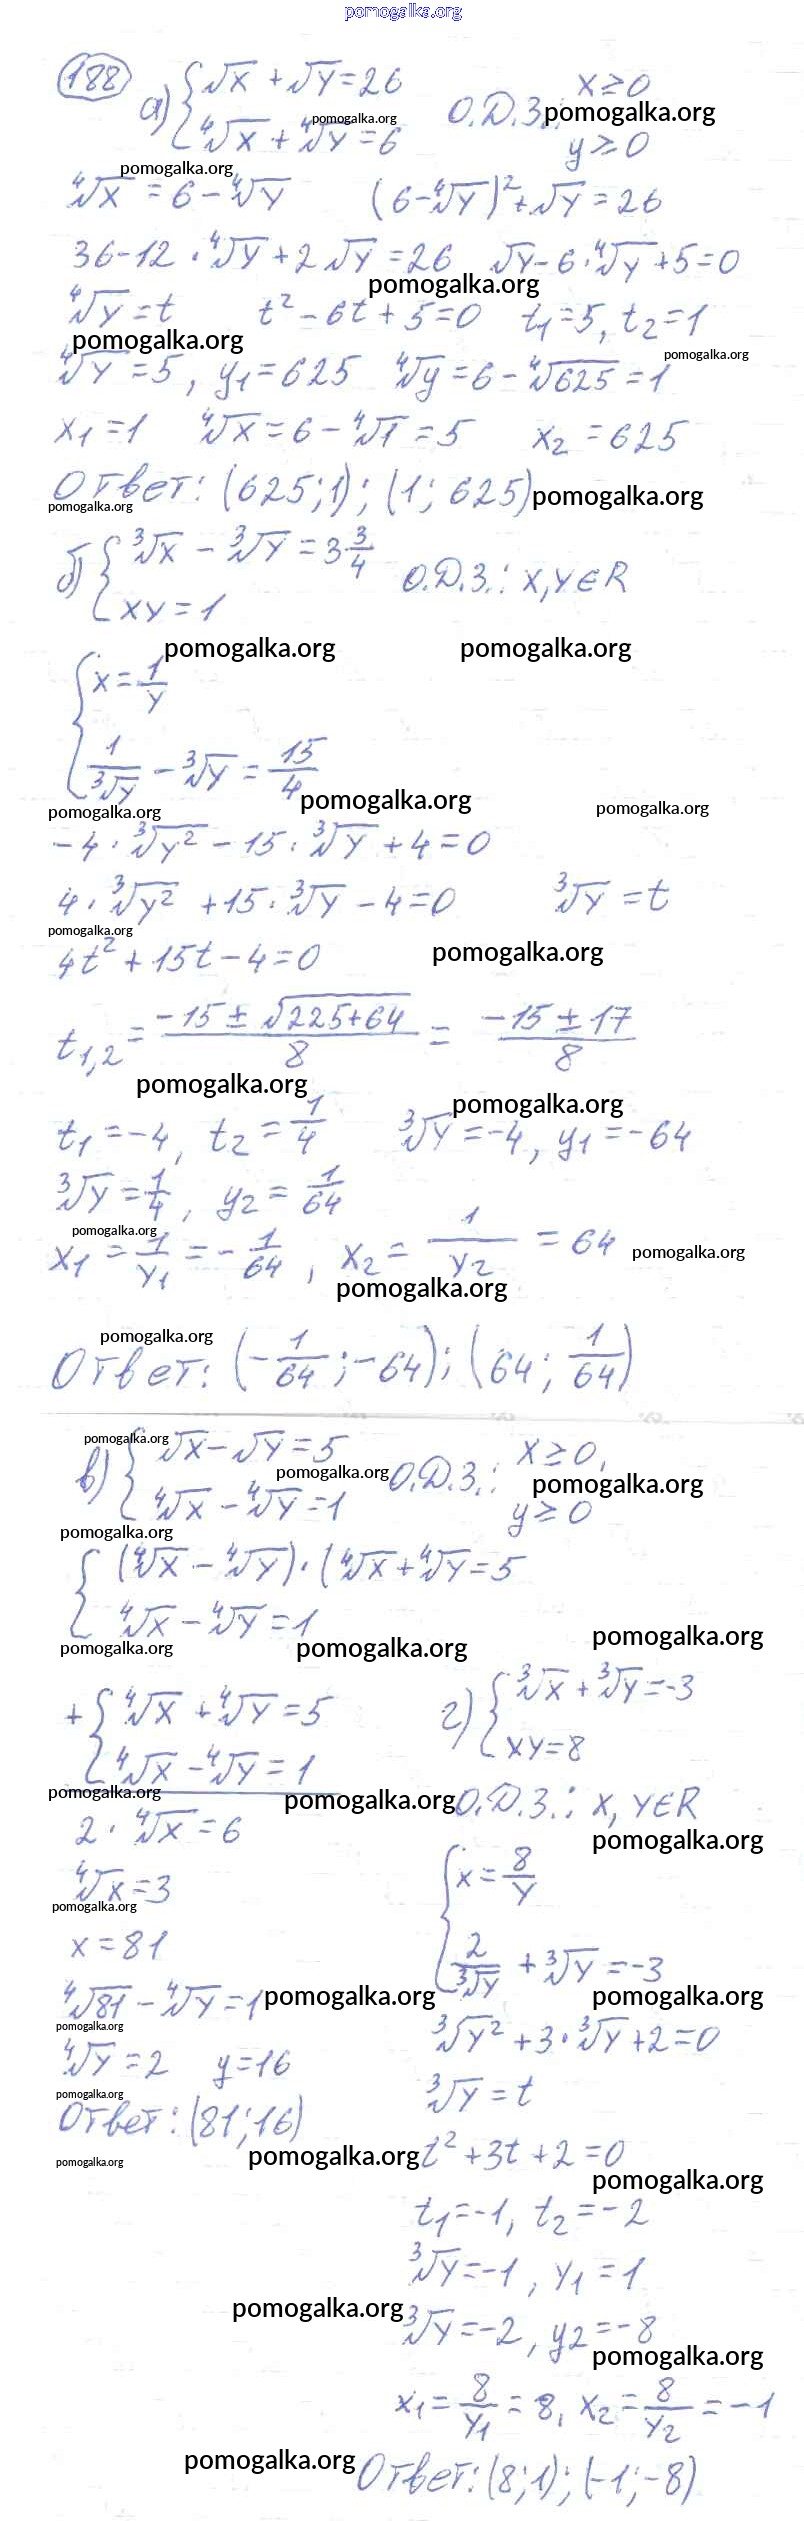 pomogalka.org
188
а) { √x + √y = 26
⁴√x + ⁴√y = 6
О.Д.З.: x ≥ 0
y ≥ 0
pomogalka.org
pomogalka.org
pomogalka.org
⁴√x = 6 - ⁴√y (6 - ⁴√y)² + √y = 26
36 - 12 · ⁴√y + 2√y = 26 √y - 6 · ⁴√y + 5 = 0
pomogalka.org
⁴√y = t t² - 6t + 5 = 0 t₁ = 5, t₂ = 1
pomogalka.org
pomogalka.org
⁴√y = 5, y₁ = 625 ⁴√y = 6 - ⁴√625 = 1
x₁ = 1 ⁴√x = 6 - ⁴√1 = 5 x₂ = 625
Ответ: (625; 1); (1; 625)
pomogalka.org
pomogalka.org
б) { ³√x - ³√y = 3 3/4
xy = 1
О.Д.З.: x, y ∈ R
pomogalka.org pomogalka.org
{ x = 1/y
1/³√y - ³√y = 15/4
pomogalka.org
pomogalka.org
pomogalka.org
-4 · ³√y² - 15 · ³√y + 4 = 0
4 · ³√y² + 15 · ³√y - 4 = 0 ³√y = t
pomogalka.org
4t² + 15t - 4 = 0
pomogalka.org
t₁,₂ = (-15 ± √(225+64))/8 = (-15 ± 17)/8
pomogalka.org
pomogalka.org
t₁ = -4, t₂ = 1/4 ³√y = -4, y₁ = -64
³√y = 1/4, y₂ = 1/64
pomogalka.org
x₁ = 1/y₁ = -1/64, x₂ = 1/y₂ = 64
pomogalka.org
pomogalka.org
pomogalka.org
Ответ: (-1/64; -64); (64; 1/64)
pomogalka.org
в) { √x - √y = 5
⁴√x - ⁴√y = 1
О.Д.З.: x ≥ 0,
y ≥ 0
pomogalka.org
pomogalka.org
pomogalka.org
{ (⁴√x - ⁴√y) · (⁴√x + ⁴√y = 5
⁴√x - ⁴√y = 1
pomogalka.org
pomogalka.org
pomogalka.org
+ { ⁴√x + ⁴√y = 5
⁴√x - ⁴√y = 1
pomogalka.org
2 · ⁴√x = 6
⁴√x = 3
pomogalka.org
x = 81
⁴√81 - ⁴√y = 1
pomogalka.org
pomogalka.org
⁴√y = 2 y = 16
pomogalka.org
Ответ: (81; 16)
pomogalka.org
г) { ³√x + ³√y = -3
xy = 8
pomogalka.org
О.Д.З.: x, y ∈ R
pomogalka.org
{ x = 8/y
2/³√y + ³√y = -3
pomogalka.org
³√y² + 3 · ³√y + 2 = 0
³√y = t
pomogalka.org
t² + 3t + 2 = 0
pomogalka.org
t₁ = -1, t₂ = -2
³√y = -1, y₁ = 1
pomogalka.org
³√y = -2, y₂ = -8
pomogalka.org
x₁ = 8/y₁ = 8, x₂ = 8/y₂ = -1
pomogalka.org
Ответ: (8; 1); (-1; -8)